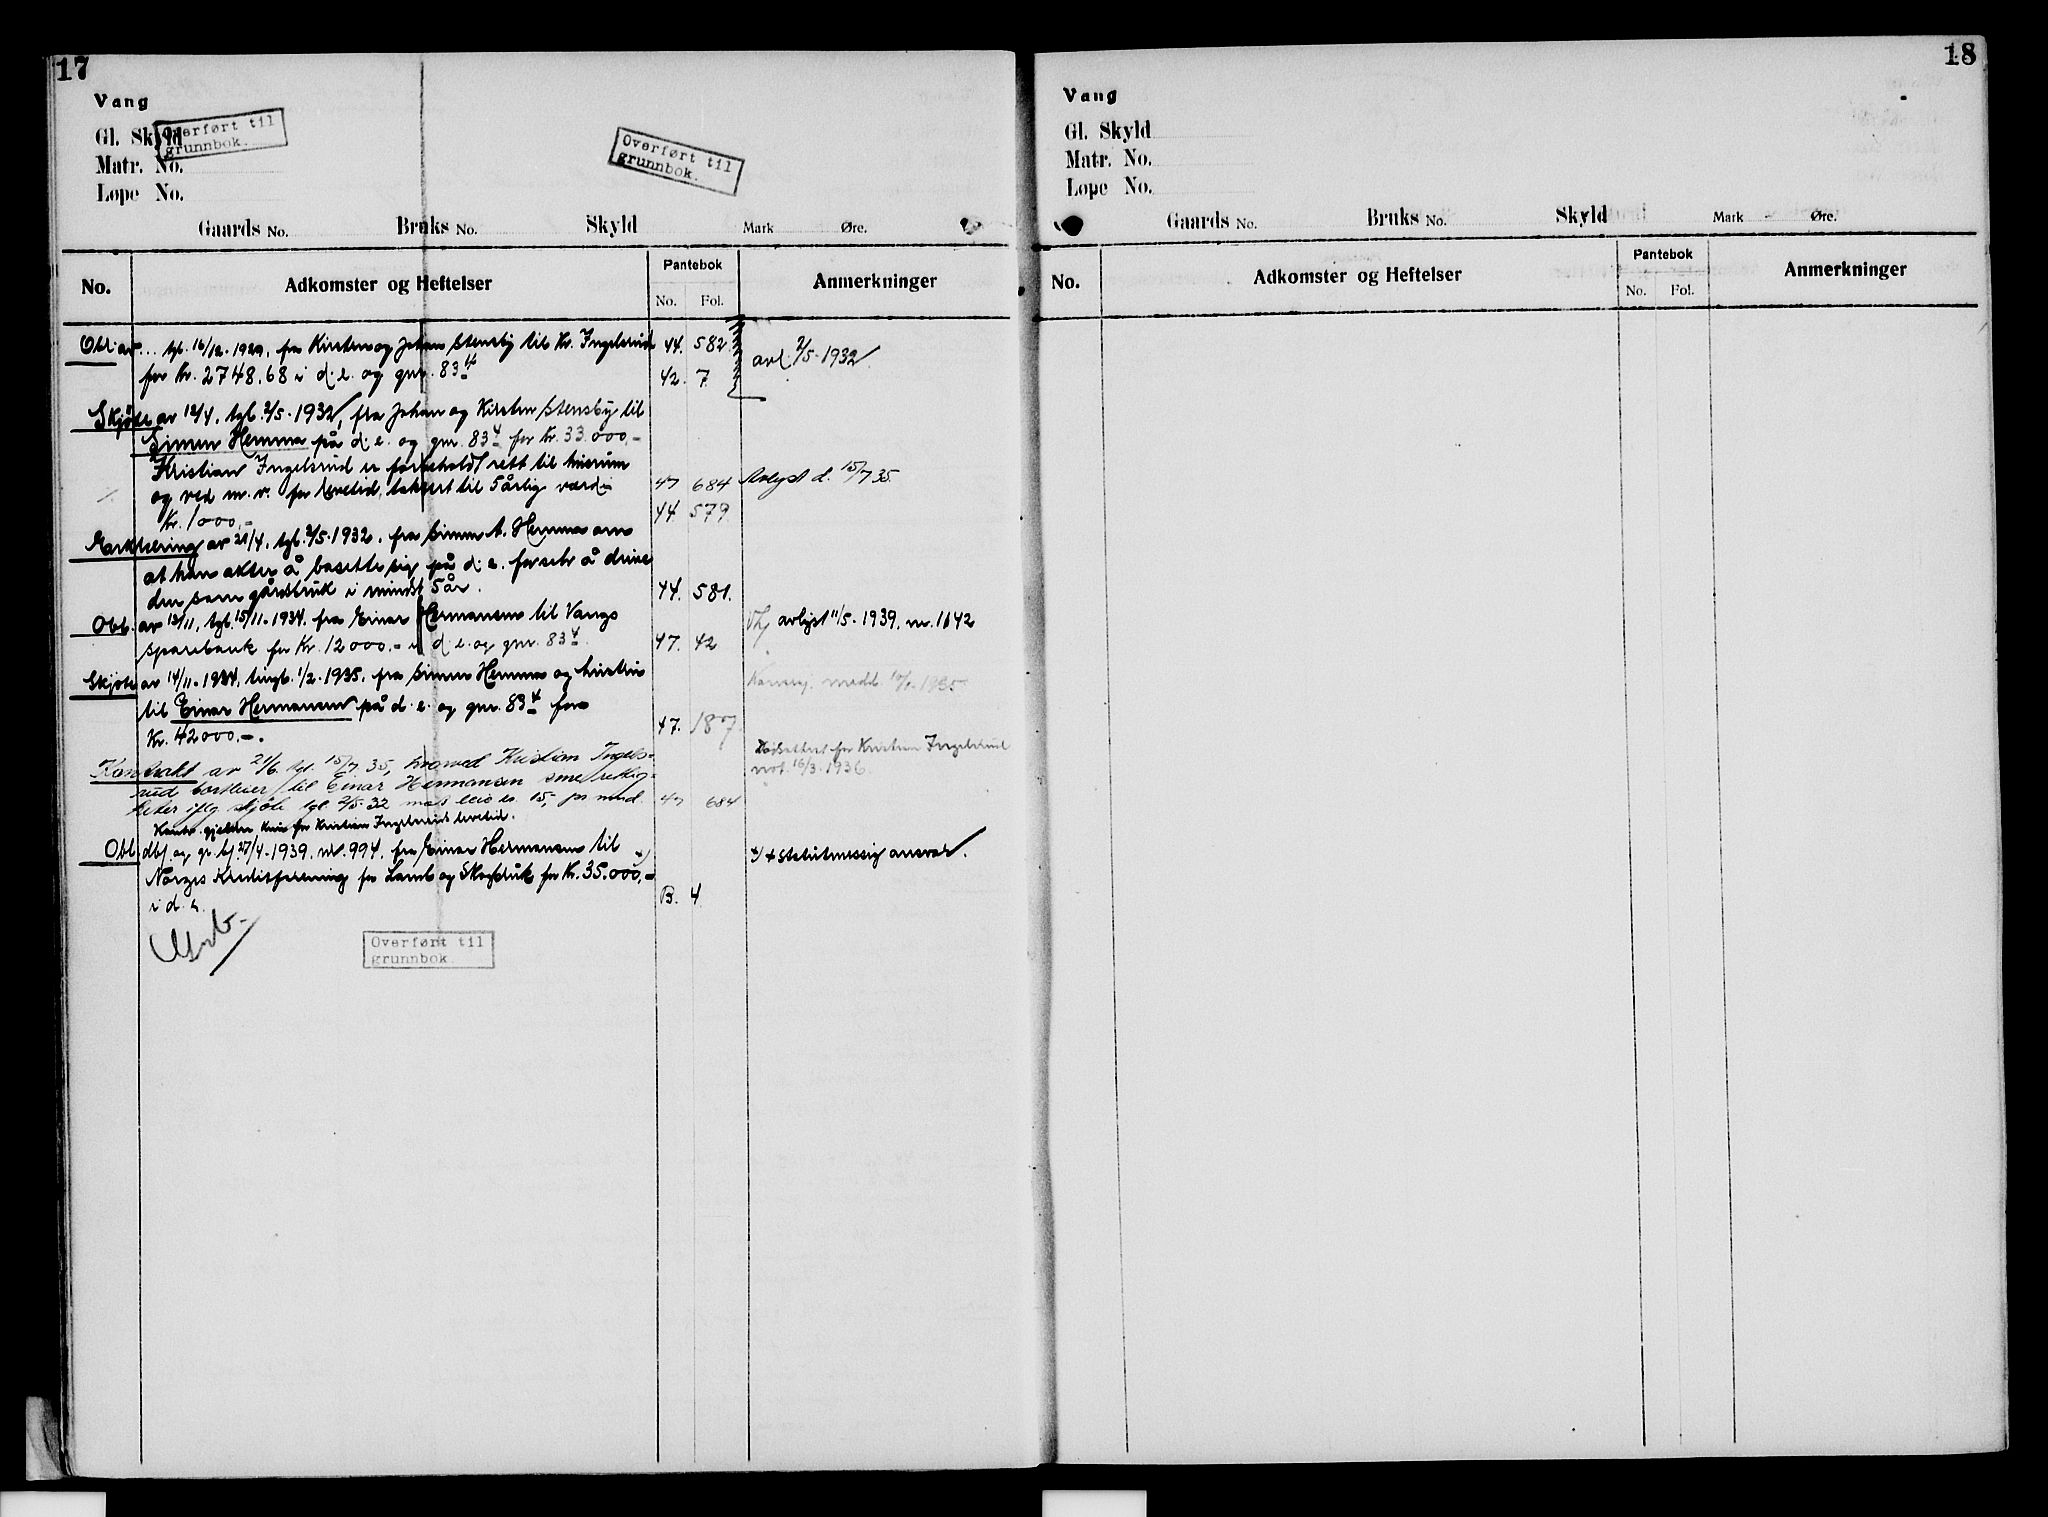 17
Vang
Gl. Skyld
Overført til
grunnbok.
Matr. No.
Løpe No.
Overført til
grunnbok.
Gaards No. Bruks No. Skyld Mark Øre.
No. Adkomster og Heftelser Pantebok No. Fol. Anmerkninger
Obl. av ... tgl. 16/12. 1929. fra Kirsten og Johan Stensby til Kr. Ingelsrud 44. 582.
for Kr. 2748.68 i d. e. og gnr. 83 4 42. 7. avl. 2/5. 1932
Skjøte av 12/4. tgl. 2/5. 1932, fra Johan og Kirsten Stensby til
Simen Hemma på d. e. og gnr. 83 4 for Kr. 33.000,-
Kristian Ingelsrud er forbeholdt rett til husrum
og ved m. v. for levetid, taksert til 5 årlig værdi 47 684 Avlyst d. 15/7 35.
Kr. 1000,- 44. 579.
Erklæring av 21/4. tgl. 2/5. 1932. fra Simen A. Hemma om
at han akter å bosette sig på d. e. for selv å drive
den som gårdsbruk i mindst 5 år. 44. 581.
Obl. av 13/11. tgl. 15/11. 1934. fra Einar Hermansen til Vangs
sparebank for Kr. 12000.- i d. e. og gnr. 83 4. 47. 42 avlyst 11/5. 1939. nr. 1142
Skjøte av 14/11. 1934. tingl. 1/2. 1935. fra Simen Hemma og hustru
til Einar Hermansen på d. e. og gnr. 83 4 for
Kr. 42000.-. 47. 187.
medd. 1935
Kontrakt av 21/6. tgl. 15/7. 35, hvorved Kristian Ingels-
rud bortleier til Einar Hermansen sine rettig-
heter iflg. skjøte tgl. 2/5 32 mot leie kr. 15,- pr mnd. 47 684
Kontr. gjelder kun for Kristian Ingelsruds levetid.
for Kristian Ingelsrud
not. 16/3. 1936.
Obl. dbf. og gr. tgl. 27/4. 1939. nr. 994. fra Einar Hermansen til x) x) + statutmessig ansvar.
Norges Kreditforening for Land og Skogbruk for Kr. 35.000,-
i d. e. B. 4.
Overført til
grunnbok.
18
Vang
Gl. Skyld
Matr. No.
Løpe No.
Gaards No. Bruks No. Skyld Mark Øre.
No. Adkomster og Heftelser Pantebok No. Fol. Anmerkninger